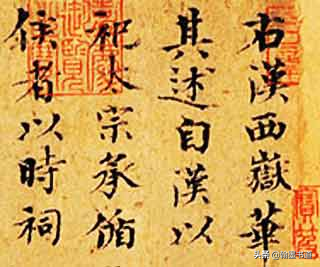 右漢西嶽華
其述自漢以
祀太宗承循
侯者以時祠
头条